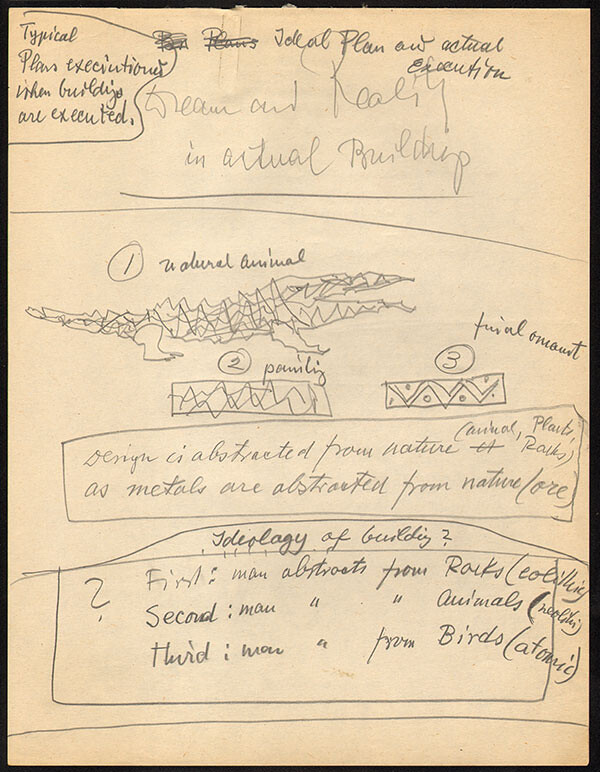 Typical
Plans executioned
when buildings
are executed.
Ideal Plan and actual
execution
Dream and Reality
in actual Building
1 natural animal
2
3
final
Design is abstracted from nature (animal, Plants, Rocks)
as metals are abstracted from nature (ore)
Ideology of building?
? First: man abstracts from Rocks (eolithic)
Second: man " " Animals (neolithic)
Third: man " from Birds (atomic)